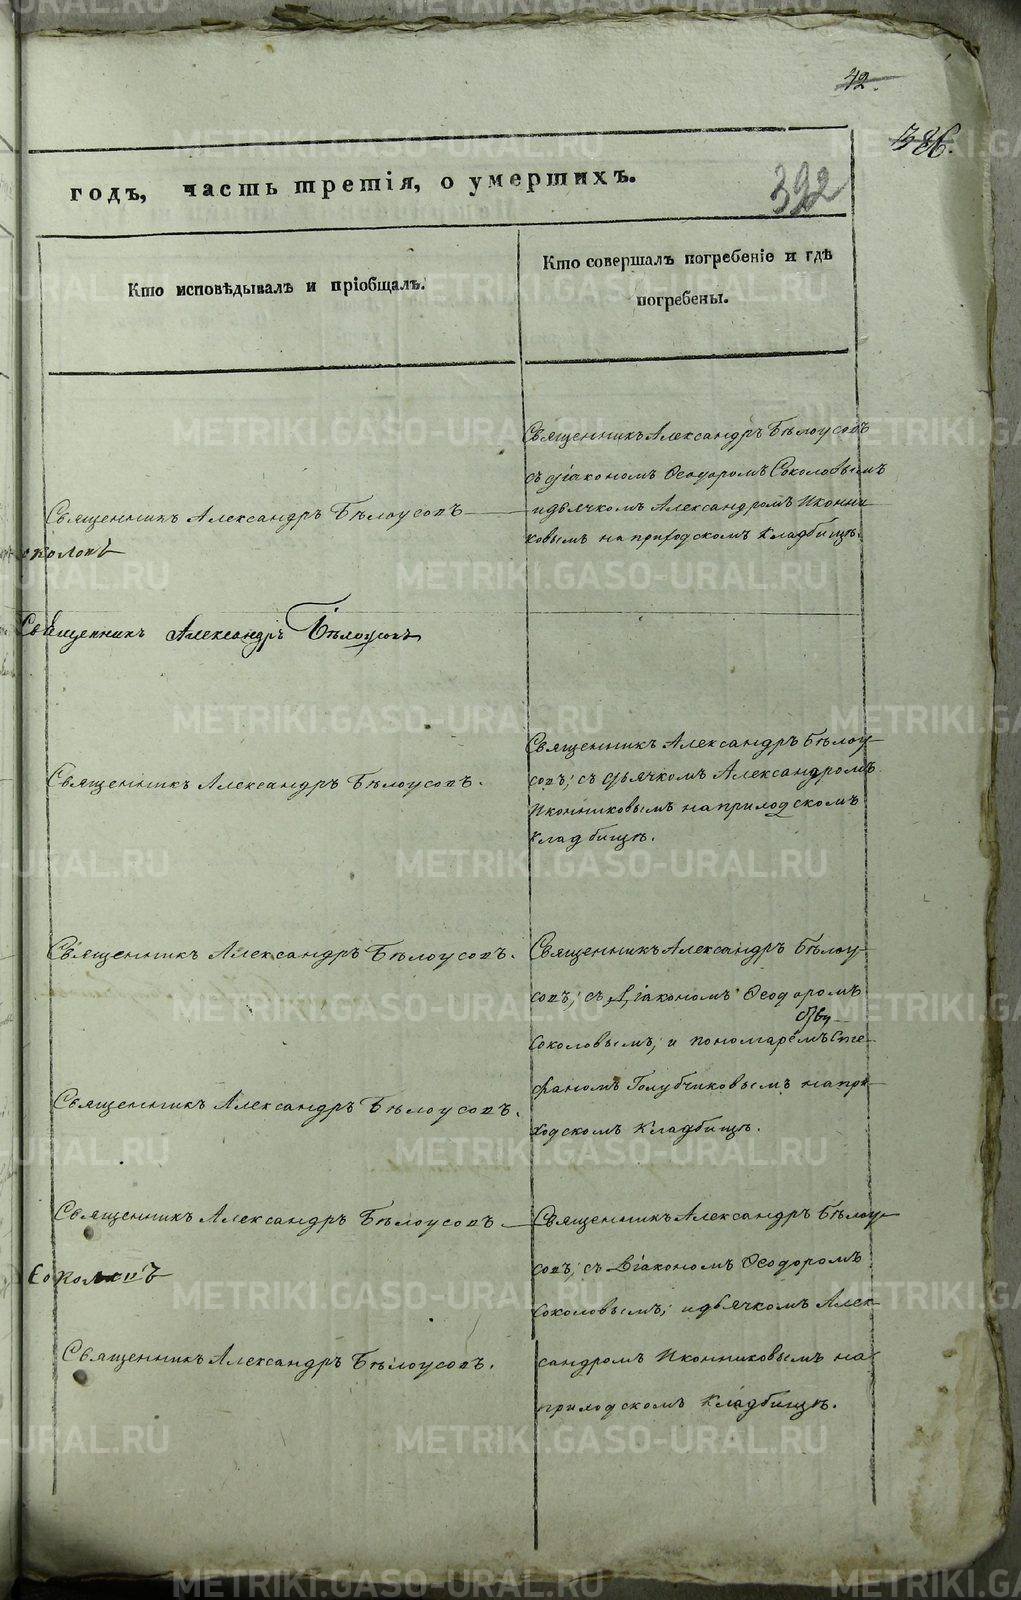 42.
386.
392
годъ, часть третія, о умершихъ.
Кто исповѣдывалъ и пріобщалъ.
Кто совершалъ погребеніе и гдѣ
погребены.
Священникъ Александръ Бѣлоусовъ
Священникъ Александръ Бѣлоусовъ
съ діакономъ Ѳеодоромъ Соколовымъ
и дьячкомъ Александромъ Иконни-
ковымъ на приходскомъ кладбищѣ.
околовъ
Священникъ Александръ Бѣлоусовъ
Священникъ Александръ Бѣлоусовъ.
Священникъ Александръ Бѣлоу-
совъ; съ дьячкомъ Александромъ
Иконниковымъ на приходскомъ
кладбищѣ.
Священникъ Александръ Бѣлоусовъ.
Священникъ Александръ Бѣлоусовъ.
Священникъ Александръ Бѣлоу-
совъ; съ Діакономъ Ѳеодоромъ
Соколовымъ; и пономаремъ Сте-
фаномъ Голубчиковымъ на при-
ходскомъ кладбищѣ.
Священникъ Александръ Бѣлоусовъ
Соколовъ
Священникъ Александръ Бѣлоусовъ.
Священникъ Александръ Бѣлоу-
совъ; съ Діакономъ Ѳеодоромъ
Соколовымъ; и дьячкомъ Алек-
сандромъ Иконниковымъ на
приходскомъ кладбищѣ.
METRIKI.GASO-URAL.RU